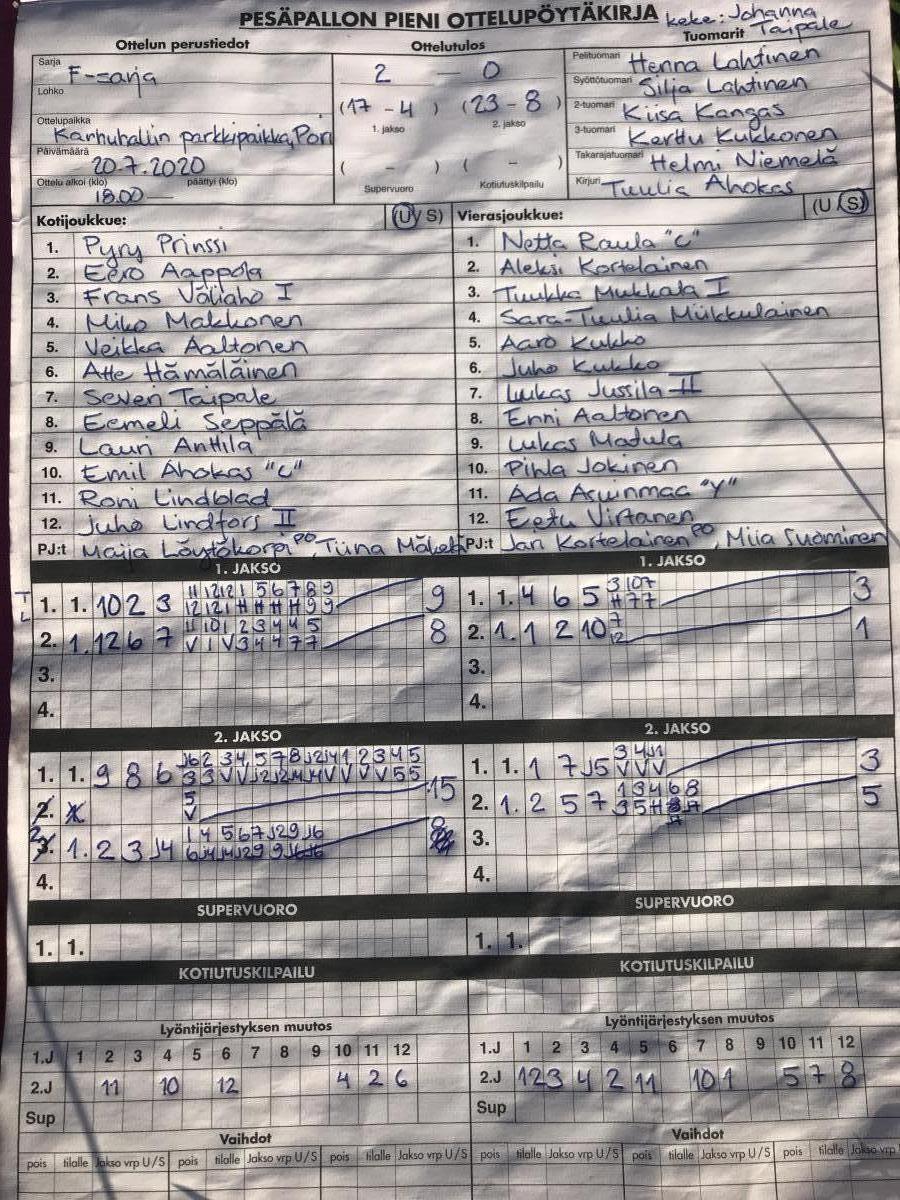 PESÄPALLON PIENI OTTELUPÖYTÄKIRJA keke: Johanna Taipale
Ottelun perustiedot Ottelutulos Tuomarit
Sarja F-sarja
Lohko
Ottelupaikka Karhuhallin parkkipaikka, Pori
Päivämäärä 20.7.2020
Ottelu alkoi (klo) 18.00 päättyi (klo) —
2 — 0
(17 - 4) (23 - 8)
1. jakso 2. jakso
( - ) ( - )
Supervuoro Kotiutuskilpailu
Pelituomari Henna Lahtinen
Syöttötuomari Silja Lahtinen
2-tuomari Kiisa Kangas
3-tuomari Kerttu Kukkonen
Takarajatuomari Helmi Niemelä
Kirjuri Tuulia Ahokas
Kotijoukkue: (U/S)
1. Pyry Prinssi
2. Eero Aappola
3. Frans Väliaho I
4. Miko Makkonen
5. Veikka Aaltonen
6. Atte Hämäläinen
7. Severi Taipale
8. Eemeli Seppälä
9. Lauri Anttila
10. Emil Ahokas "C"
11. Roni Lindblad
12. Juho Lindfors II
PJ:t Maija Löytökorpi PO, Tiina
Vierasjoukkue: (U/S)
1. Netta Raula "C"
2. Aleksi Kortelainen
3. Tuukka Mukkala I
4. Sara-Tuulia Mükkulainen
5. Aaro Kukko
6. Juho Kukko
7. Luukas Jussila II
8. Enni Aaltonen
9. Lukas Madula
10. Pihla Jokinen
11. Ada "Y"
12. Eetu Virtanen
PJ:t Jari Kortelainen PO, Miia Suominen
1. JAKSO 1. JAKSO
1. 1. 10 2 3 9
2. 1. 12 6 7 8
3.
4.
1. 1. 4 6 5 3
2. 1. 1 2 10 1
3.
4.
2. JAKSO 2. JAKSO
1. 1. 9 8 6 15
2.
3. 1. 2 3 J4 8
4.
1. 1. 1 7 J5 3
2. 1. 2 5 7 5
3.
4.
SUPERVUORO SUPERVUORO
1. 1. 1. 1.
KOTIUTUSKILPAILU KOTIUTUSKILPAILU
Lyöntijärjestyksen muutos
1.J 1 2 3 4 5 6 7 8 9 10 11 12
2.J 11 10 12 4 2 6
Sup
Lyöntijärjestyksen muutos
1.J 1 2 3 4 5 6 7 8 9 10 11 12
2.J 12 3 4 2 11 10 1 5 7 8
Sup
Vaihdot Vaihdot
pois tilalle Jakso vrp U/S pois tilalle Jakso vrp U/S pois tilalle Jakso vrp U/S
pois tilalle Jakso vrp U/S pois tilalle Jakso vrp U/S pois tilalle Jakso vrp